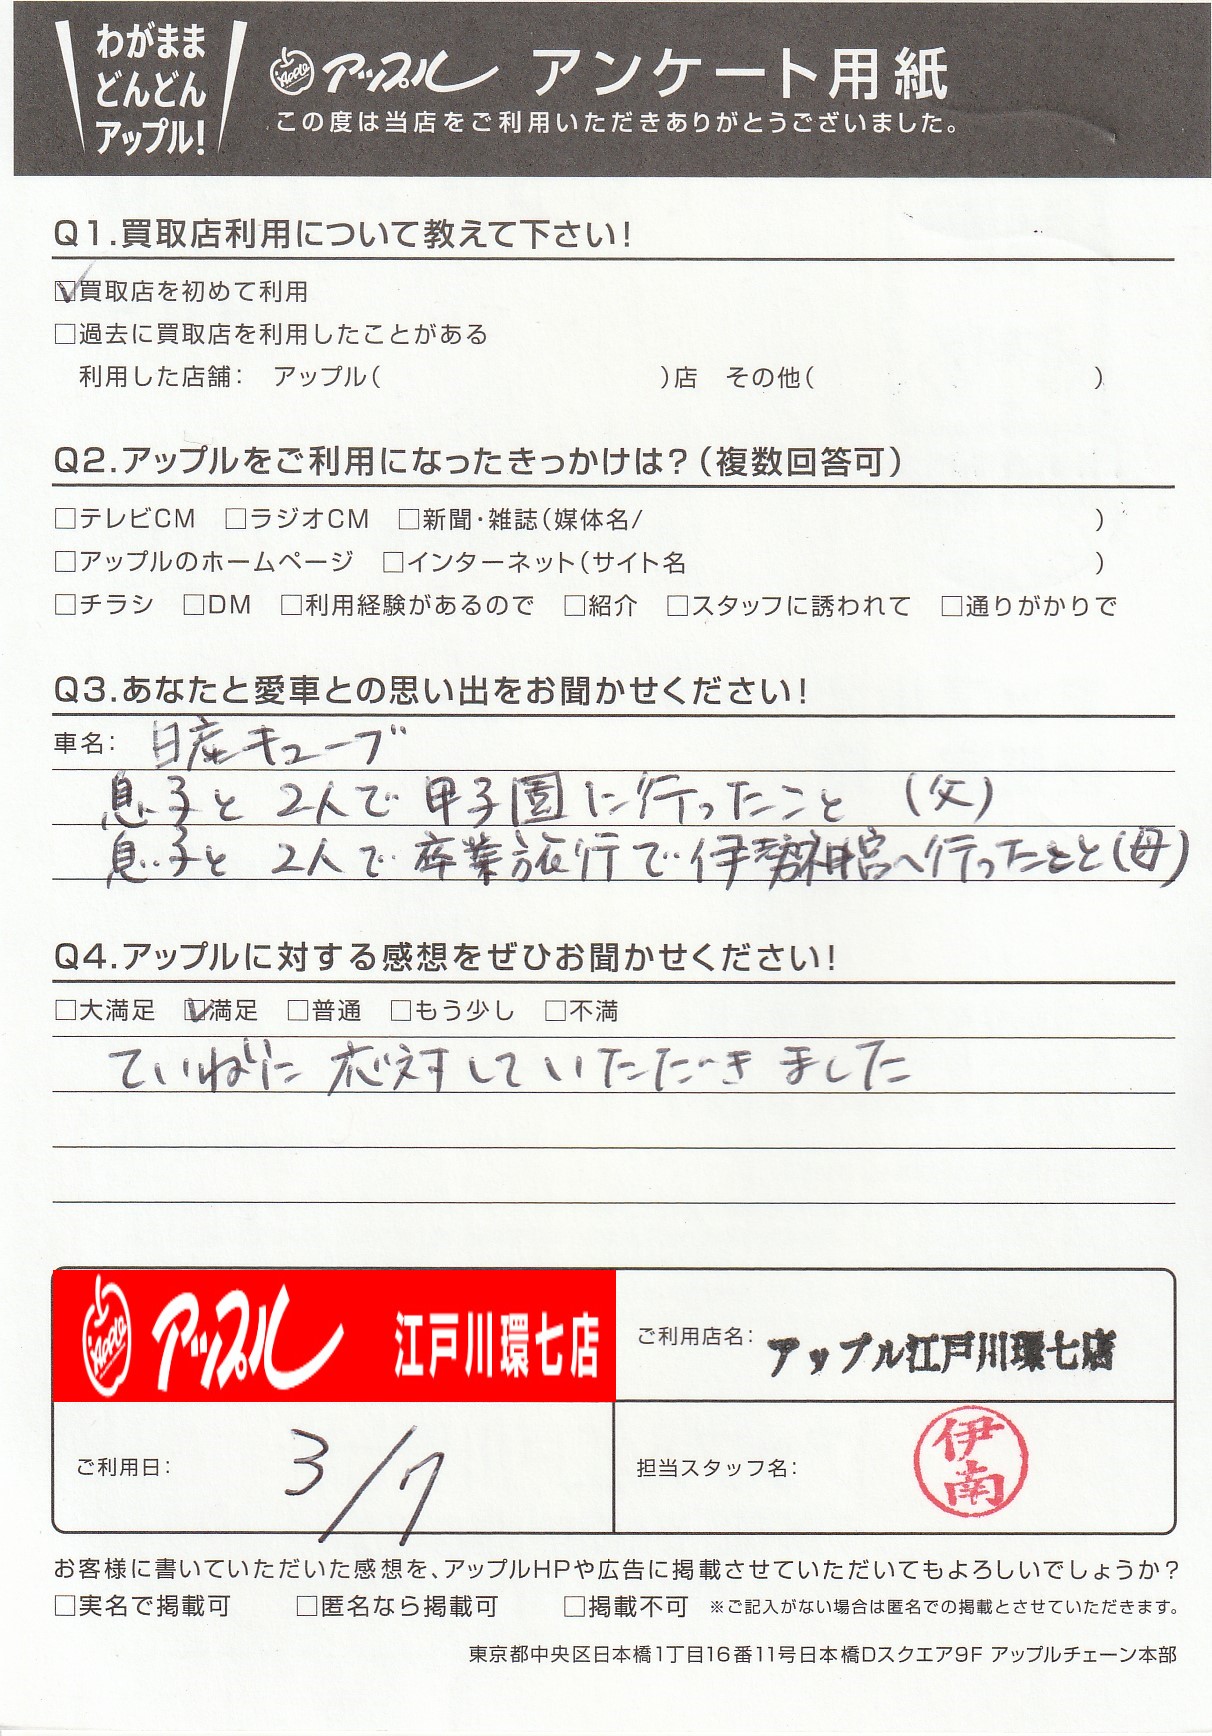 わがまま
どんどん
アップル!
Apple アップル アンケート用紙
この度は当店をご利用いただきありがとうございました。
Q1.買取店利用について教えて下さい!
☑買取店を初めて利用
□過去に買取店を利用したことがある
利用した店舗: アップル( )店 その他( )
Q2.アップルをご利用になったきっかけは?(複数回答可)
□テレビCM □ラジオCM □新聞・雑誌(媒体名/ )
□アップルのホームページ □インターネット(サイト名 )
□チラシ □DM □利用経験があるので □紹介 □スタッフに誘われて □通りがかりで
Q3.あなたと愛車との思い出をお聞かせください!
車名: 日産キューブ
息子と2人で甲子園に行ったこと (父)
息子と2人で卒業旅行で伊勢神宮へ行ったこと(母)
Q4.アップルに対する感想をぜひお聞かせください!
□大満足 ☑満足 □普通 □もう少し □不満
ていねいに応対していただきました
Apple アップル 江戸川環七店
ご利用店名: アップル江戸川環七店
ご利用日: 3/7
担当スタッフ名: 伊南
お客様に書いていただいた感想を、アップルHPや広告に掲載させていただいてもよろしいでしょうか?
□実名で掲載可 □匿名なら掲載可 □掲載不可 ※ご記入がない場合は匿名での掲載とさせていただきます。
東京都中央区日本橋1丁目16番11号日本橋Dスクエア9F アップルチェーン本部